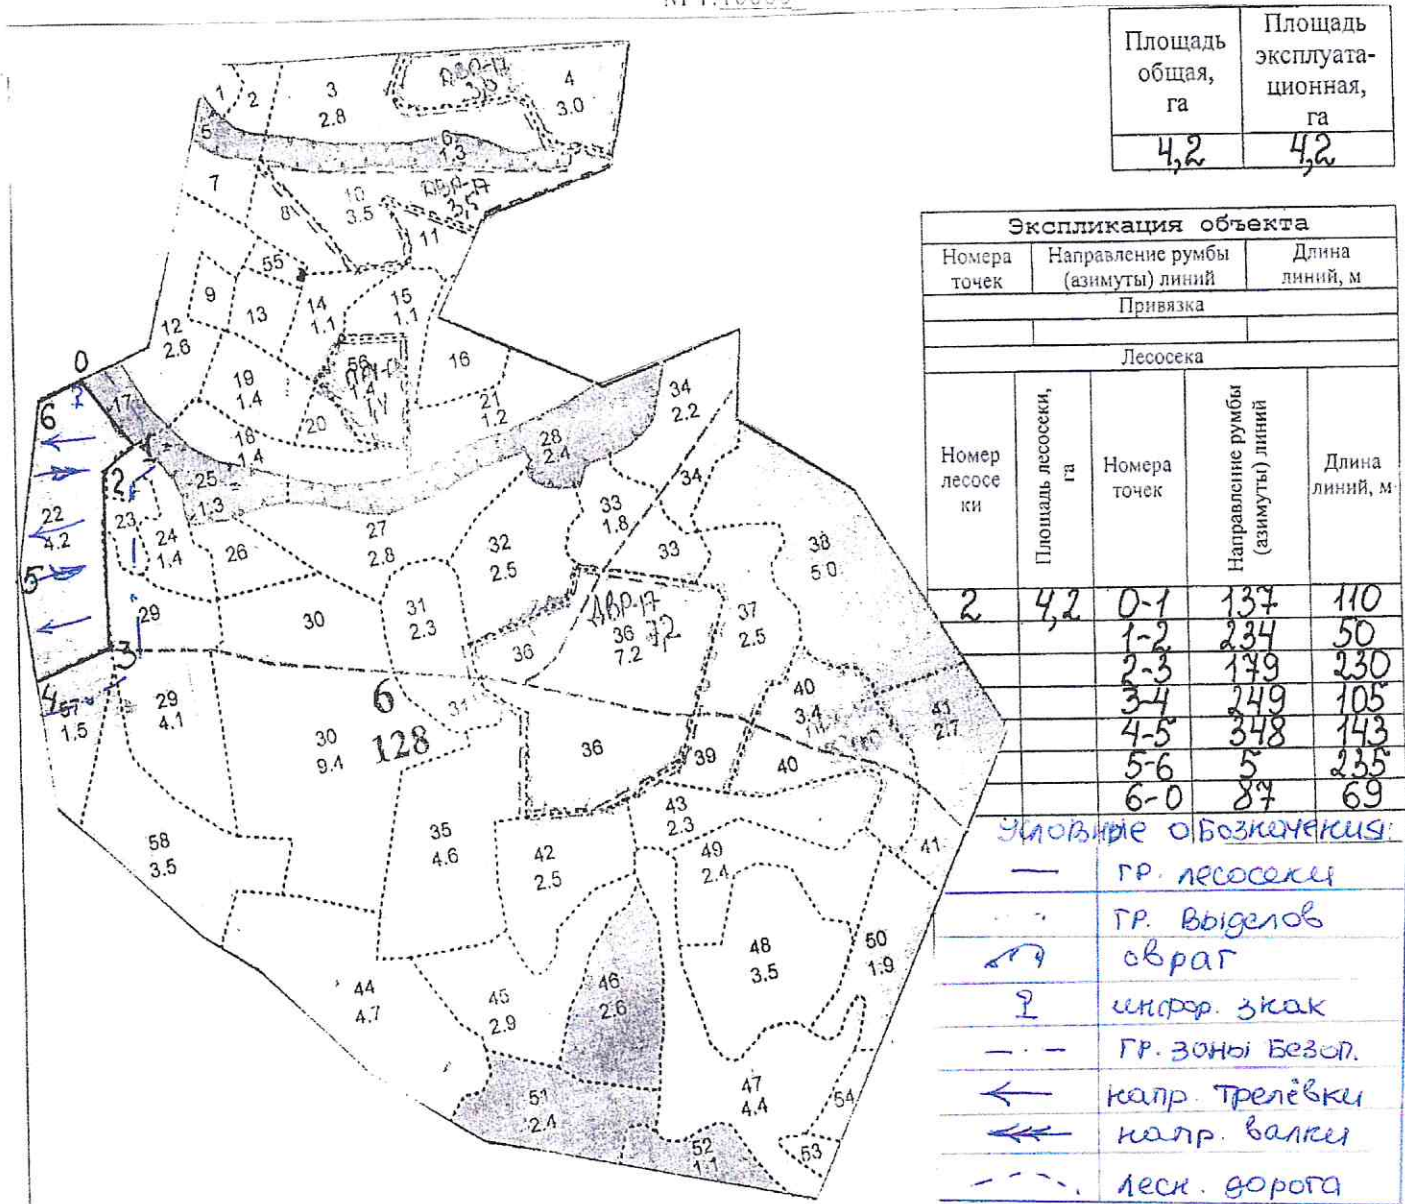 Площадь общая, га
Площадь эксплуата-ционная, га
4,2 4,2
Экспликация объекта
Номера точек
Направление румбы (азимуты) линий
Длина линий, м
Привязка
Лесосека
Номер лесосе ки
Площадь лесосеки, га
Номера точек
Направление румбы (азимуты) линий
Длина линий, м
2 4,2 0-1 137 110
1-2 234 50
2-3 179 230
3-4 249 105
4-5 348 143
5-6 5 235
6-0 87 69
Условные обозначения:
гр. лесосеки
гр. выделов
овраг
инфор. знак
гр. зоны безоп.
напр. трелёвки
напр. валки
лесн. дорога
1
2
3
2.8
4
3.0
5
6
1.3
7
8
10
3.5
ДВР-17
3,5
11
55
9
13
14
1.1
15
1.1
12
2.6
16
56
1.4
19
1.4
20
21
1.2
34
2.2
0
6
17
18
1.4
28
2.4
1
2
25
1.3
34
22
4.2
23
24
1.4
26
27
2.8
32
2.5
33
1.8
33
38
5.0
5
29
30
31
2.3
36
ДВР-17
36
7.2
7,2
37
2.5
3
4
57
1.5
29
4.1
30
9.4
6
128
31
36
39
40
3.4
40
41
2.7
58
3.5
35
4.6
42
2.5
43
2.3
49
2.4
41
44
4.7
45
2.9
46
2.6
48
3.5
50
1.9
51
2.4
47
4.4
54
52
1.1
53